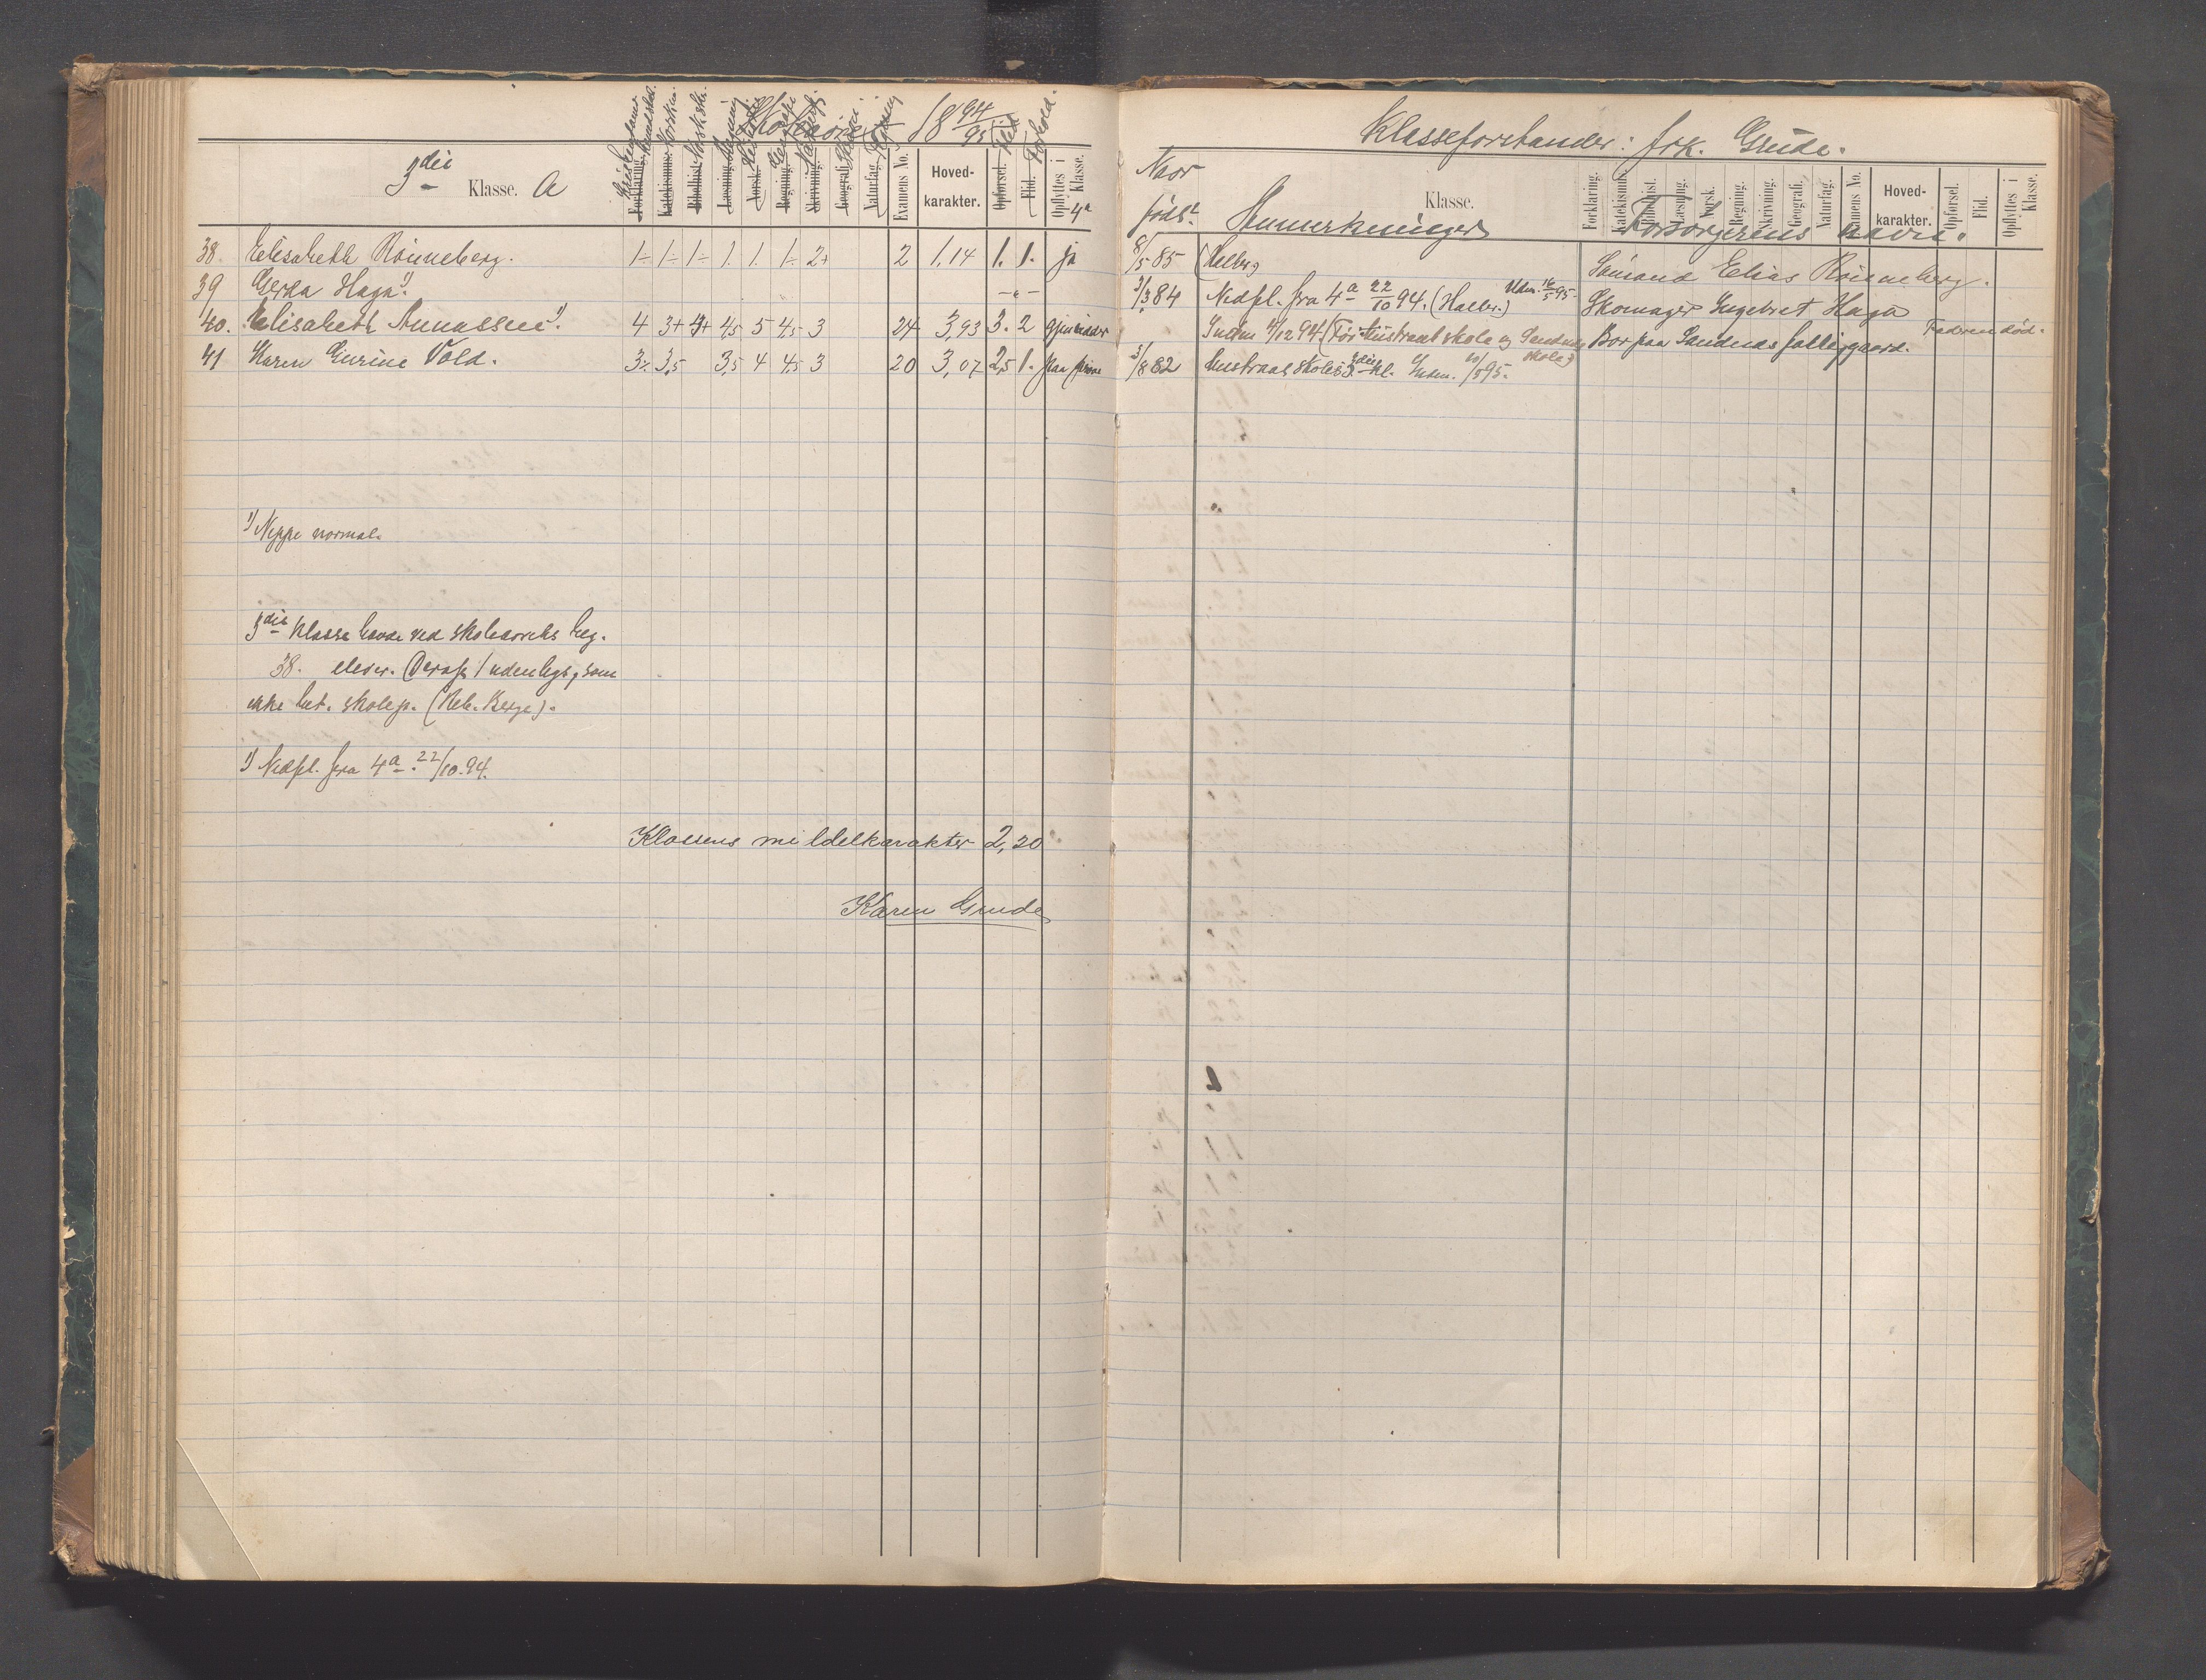 Skoleaaret 18 94/95
3die Klasse. A
Forklaring. Katekismus. Bibelhist. Læsning. Norsk. Regning. Skrivning. Geografi. Naturfag. Examens No. Hoved-karakter. Opførsel. Flid. Opflyttes i Klasse. 4a
38. Elisabeth Rönneberg. 1÷ 1÷ 1÷ 1. 1. 1÷ 2+ 2 1,14 1. 1. ja
39 Gerda Haga.1) — " —
40. Elisabeth Amassen1). 4 3+ 4+ 4,5 5 4,5 3 24 3,93 3. 2
41 Karen Gurine Vold. 3÷ 3,5 3,5 4 4,5 3 20 3,07 2,5 1. paa prøve
1) Neppe normal.
3die klasse havde ved skoleaarets beg.
38. elever. (Deraf 1 udenbys, som
ikke bet. skolep. (Reb. Berge).
1) Nedfl. fra 4a. 22/10.94.
Klassens middelkarakter 2,20
Karen Grude
Klasseforstander: frk. Grude.
Naar født Anmerkninger Klasse. Forsørgerens navn.
Forklaring. Katekismus. Bibelhist. Læsning. Norsk. Regning. Skrivning. Geografi. Naturfag. Examens No. Hoved-karakter. Opførsel. Flid. Opflyttes i Klasse.
8/5 85 (Halbr.) Elias Rönneberg.
3/3 84 Nedfl. fra 4a 22/10 94. (Halbr.) Udm. 16/5 95. Skomager Ingebret Haga
Indm 4/12 94. (Før Austraat skole og Sandnes skole) Bor paa Sandnes fattiggaard. Faderen død.
3/8 82 Austraat skoles 3die kl. Indm. 10/5 95.